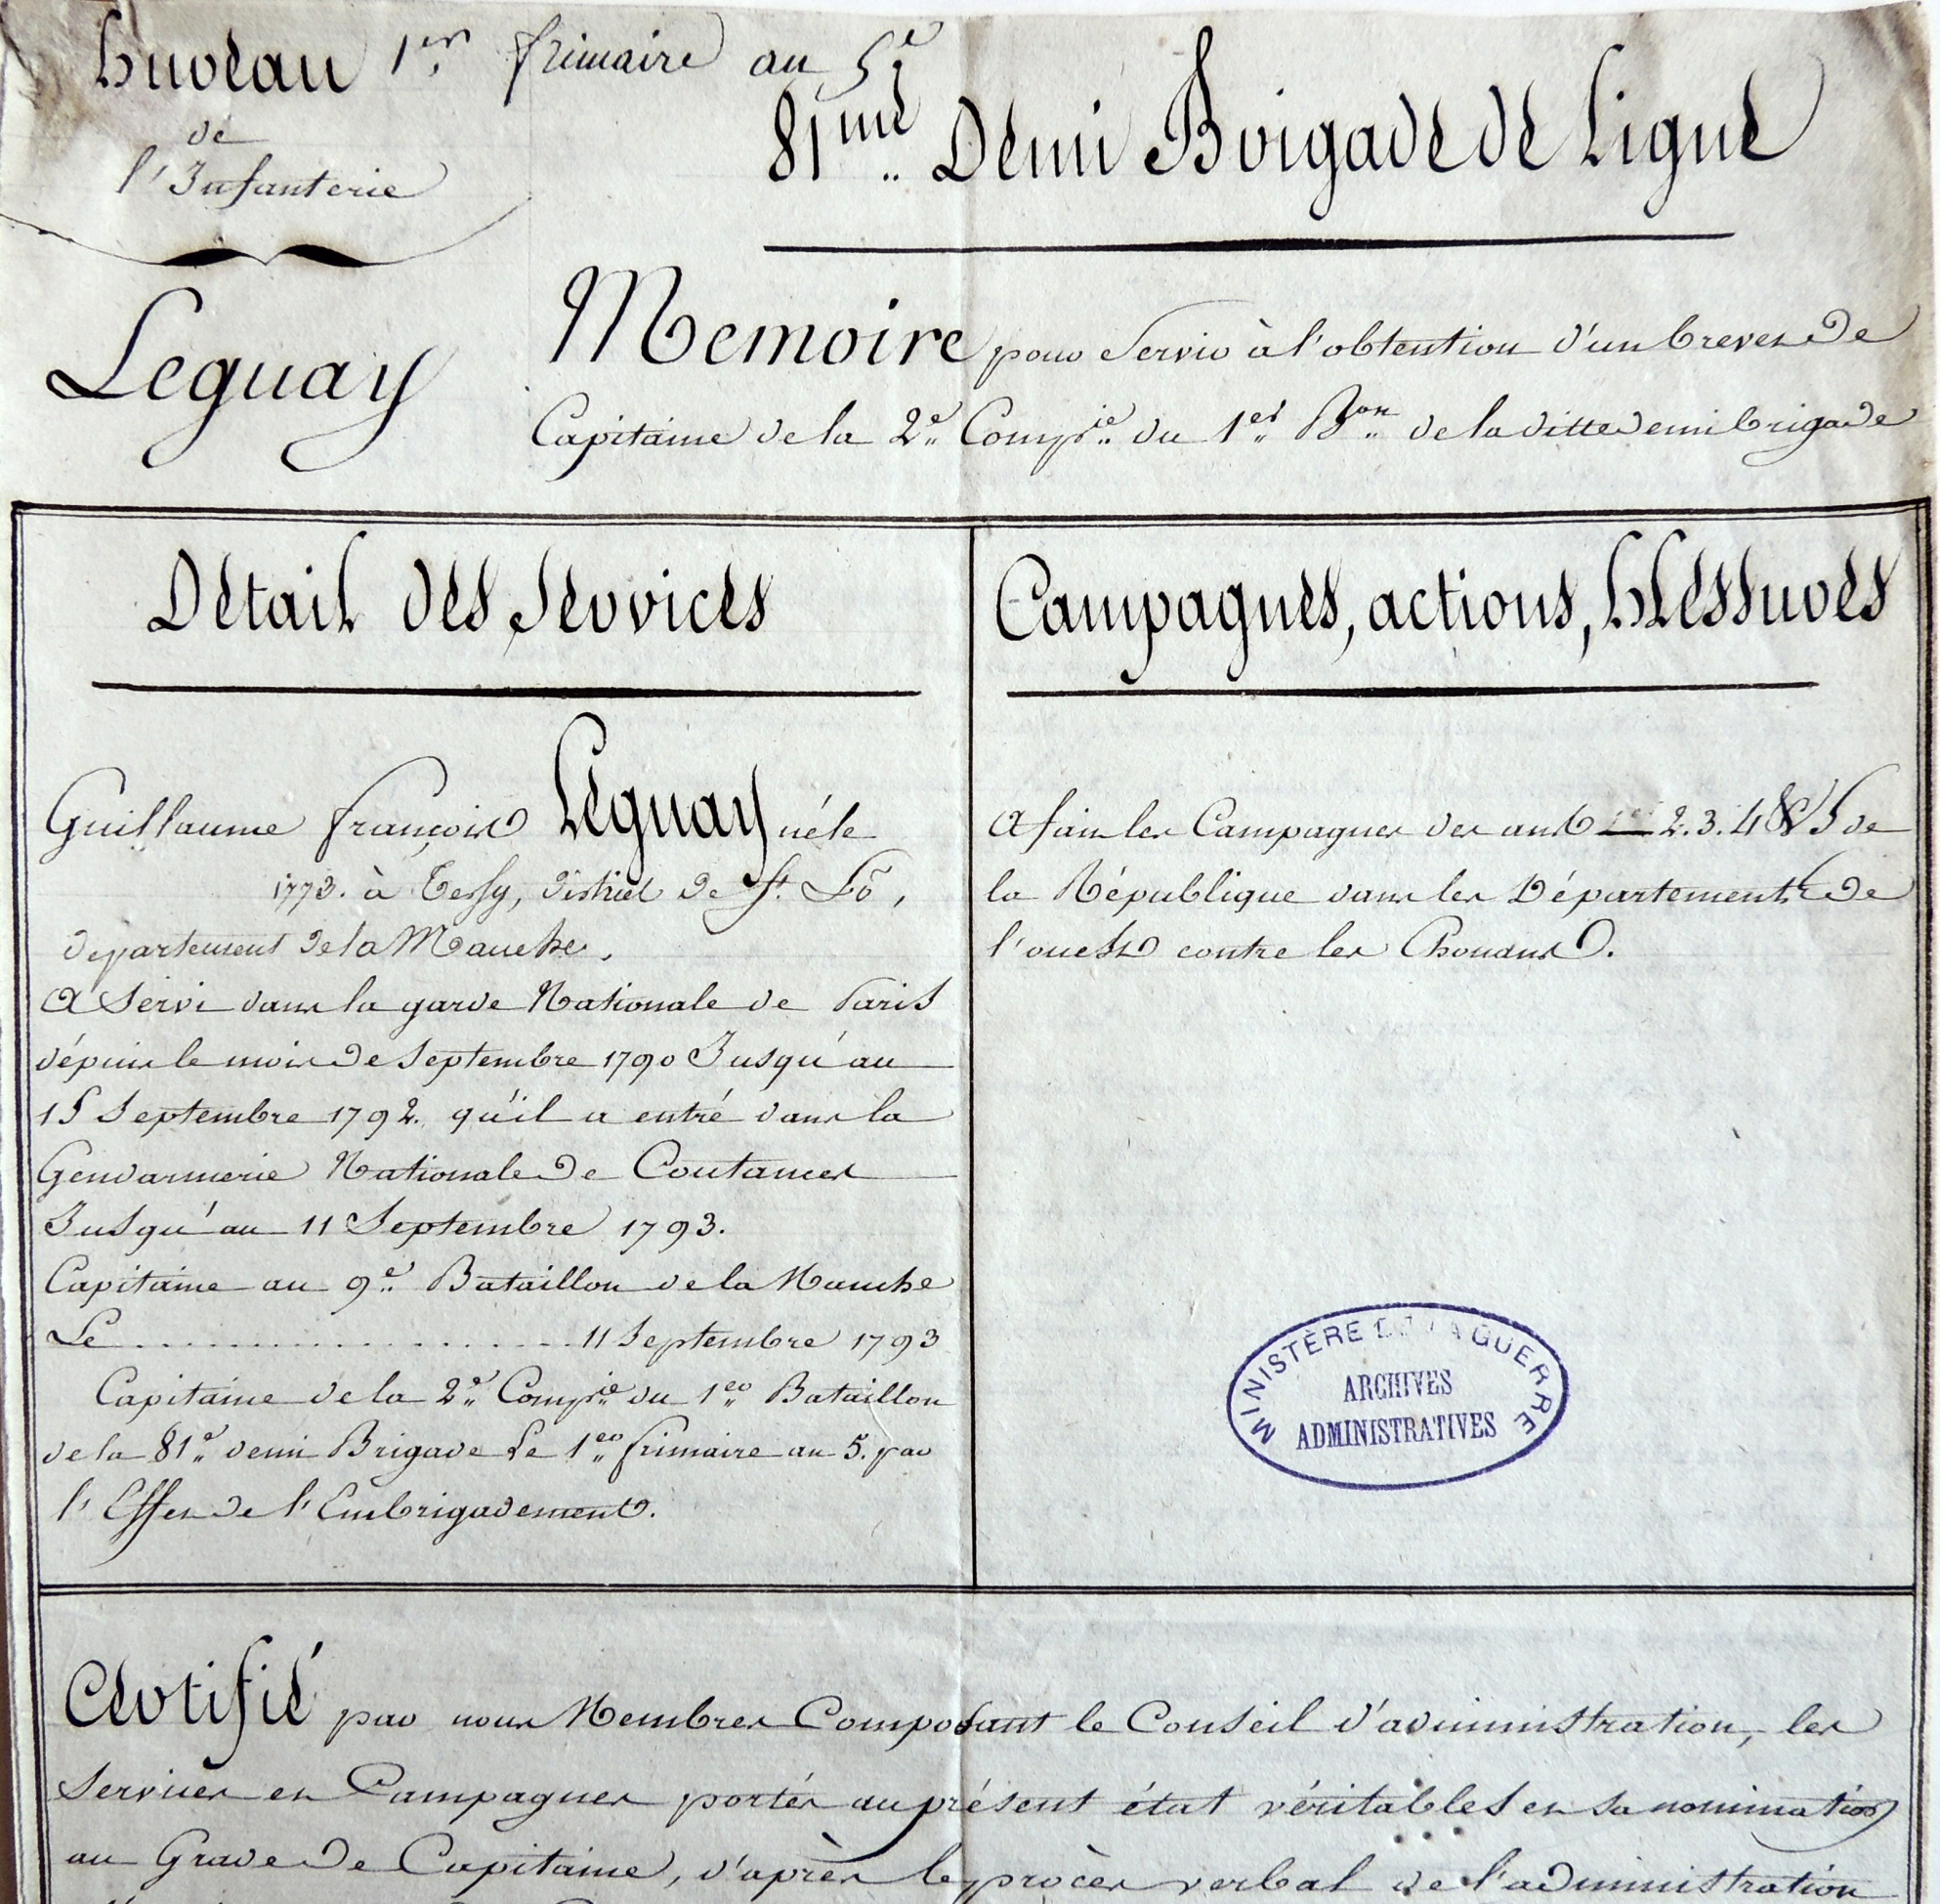 Bureau 1er frimaire an 5e
de
l'Infanterie
81me Demi Brigade de Ligne
Leguay
Memoire pour Servir à l'obtention d'un brevet de
Capitaine de la 2e Compie du 1er Bon de la ditte demi brigade
Détail des Services
Guillaume françois Leguay né le
1773. à Tessy, district de St. Lô,
departement de la Manche.
A Servi dans la garde Nationale de Paris
dépuis le mois de Septembre 1790 Jusqu'au
15 Septembre 1792. qu'il a entré dans la
Gendarmerie Nationale de Coutances
Jusqu'au 11 Septembre 1793.
Capitaine au 9e Bataillon de la Manche
Le .................... 11 Septembre 1793
Capitaine de la 2e Compie du 1er Bataillon
de la 81e demi Brigade Le 1er frimaire an 5. par
l'Effet de l'Embrigadement.
Campagnes, actions, blessures
A fait les Campagnes des ans 2. 3. 4 & 5 de
la République dans les Départements de
l'ouest contre les Chouans.
MINISTÈRE DE LA GUERRE
ARCHIVES
ADMINISTRATIVES
Certifié par nous Membres Composant le Conseil d'administration, les
Services et Campagnes portés au présent état véritables et sa nomination
au Grade de Capitaine, d'après le procès verbal de l'administration